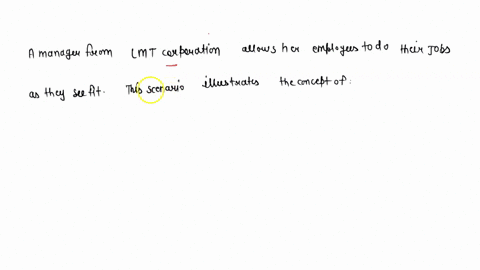 A manager from LMT corporation allows her employees to do their jobs
as they see fit. This scenario illustrates the concept of: